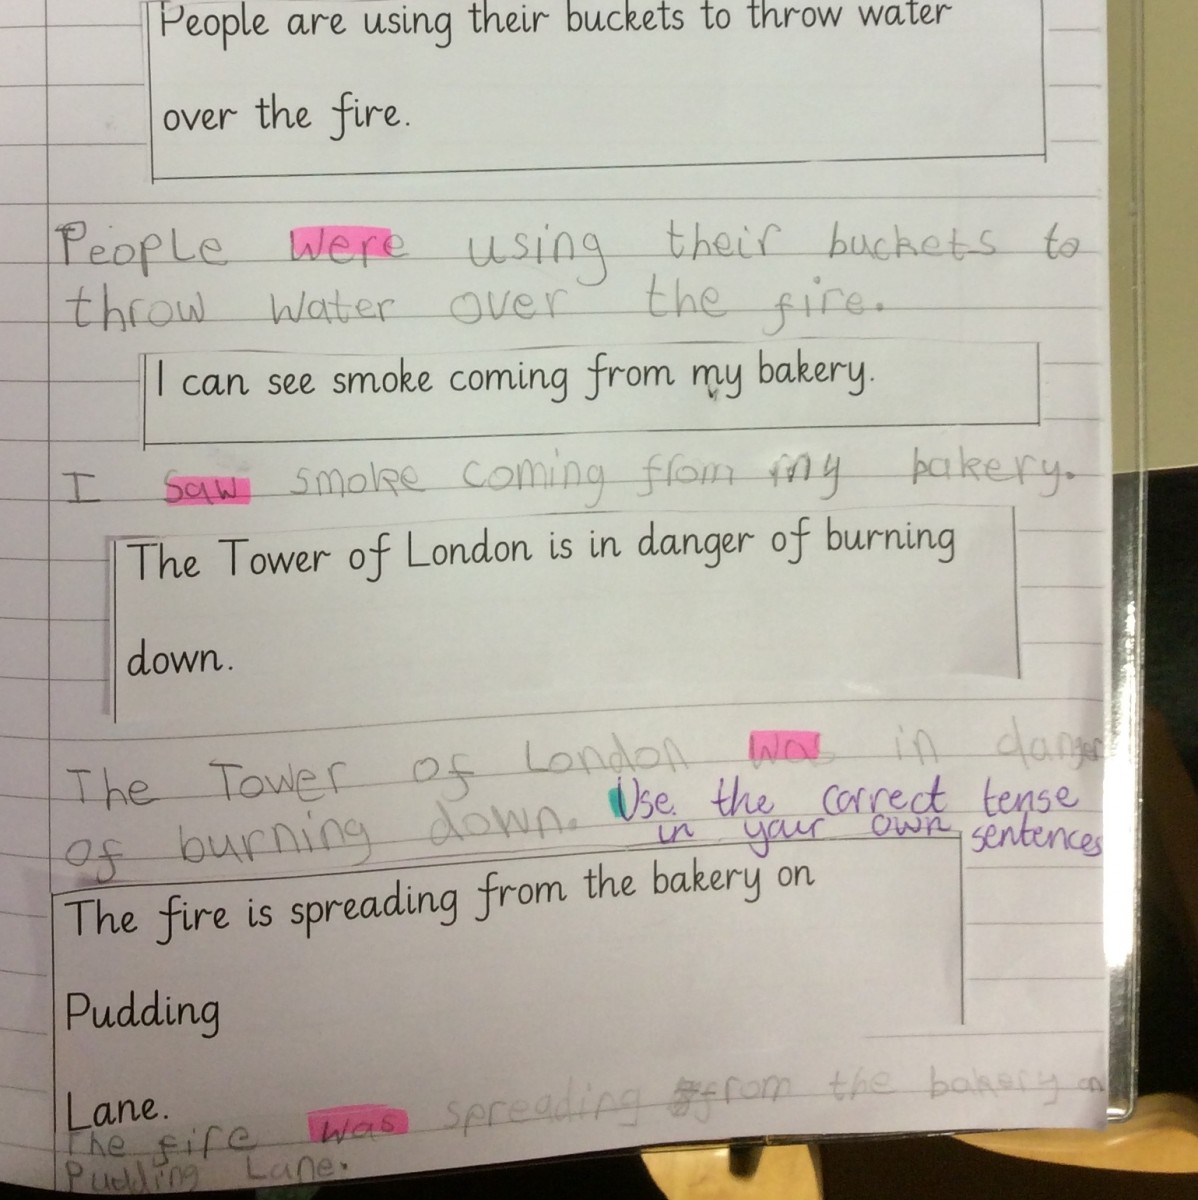 People are using their buckets to throw water
over the fire.
People were using their buckets to
throw water over the fire.
I can see smoke coming from my bakery.
I saw smoke coming from my bakery.
The Tower of London is in danger of burning
down.
The Tower of London was in danger
of burning down. Use the correct tense
in your own sentences
The fire is spreading from the bakery on
Pudding
Lane.
The fire was spreading from the bakery on
Pudding Lane.